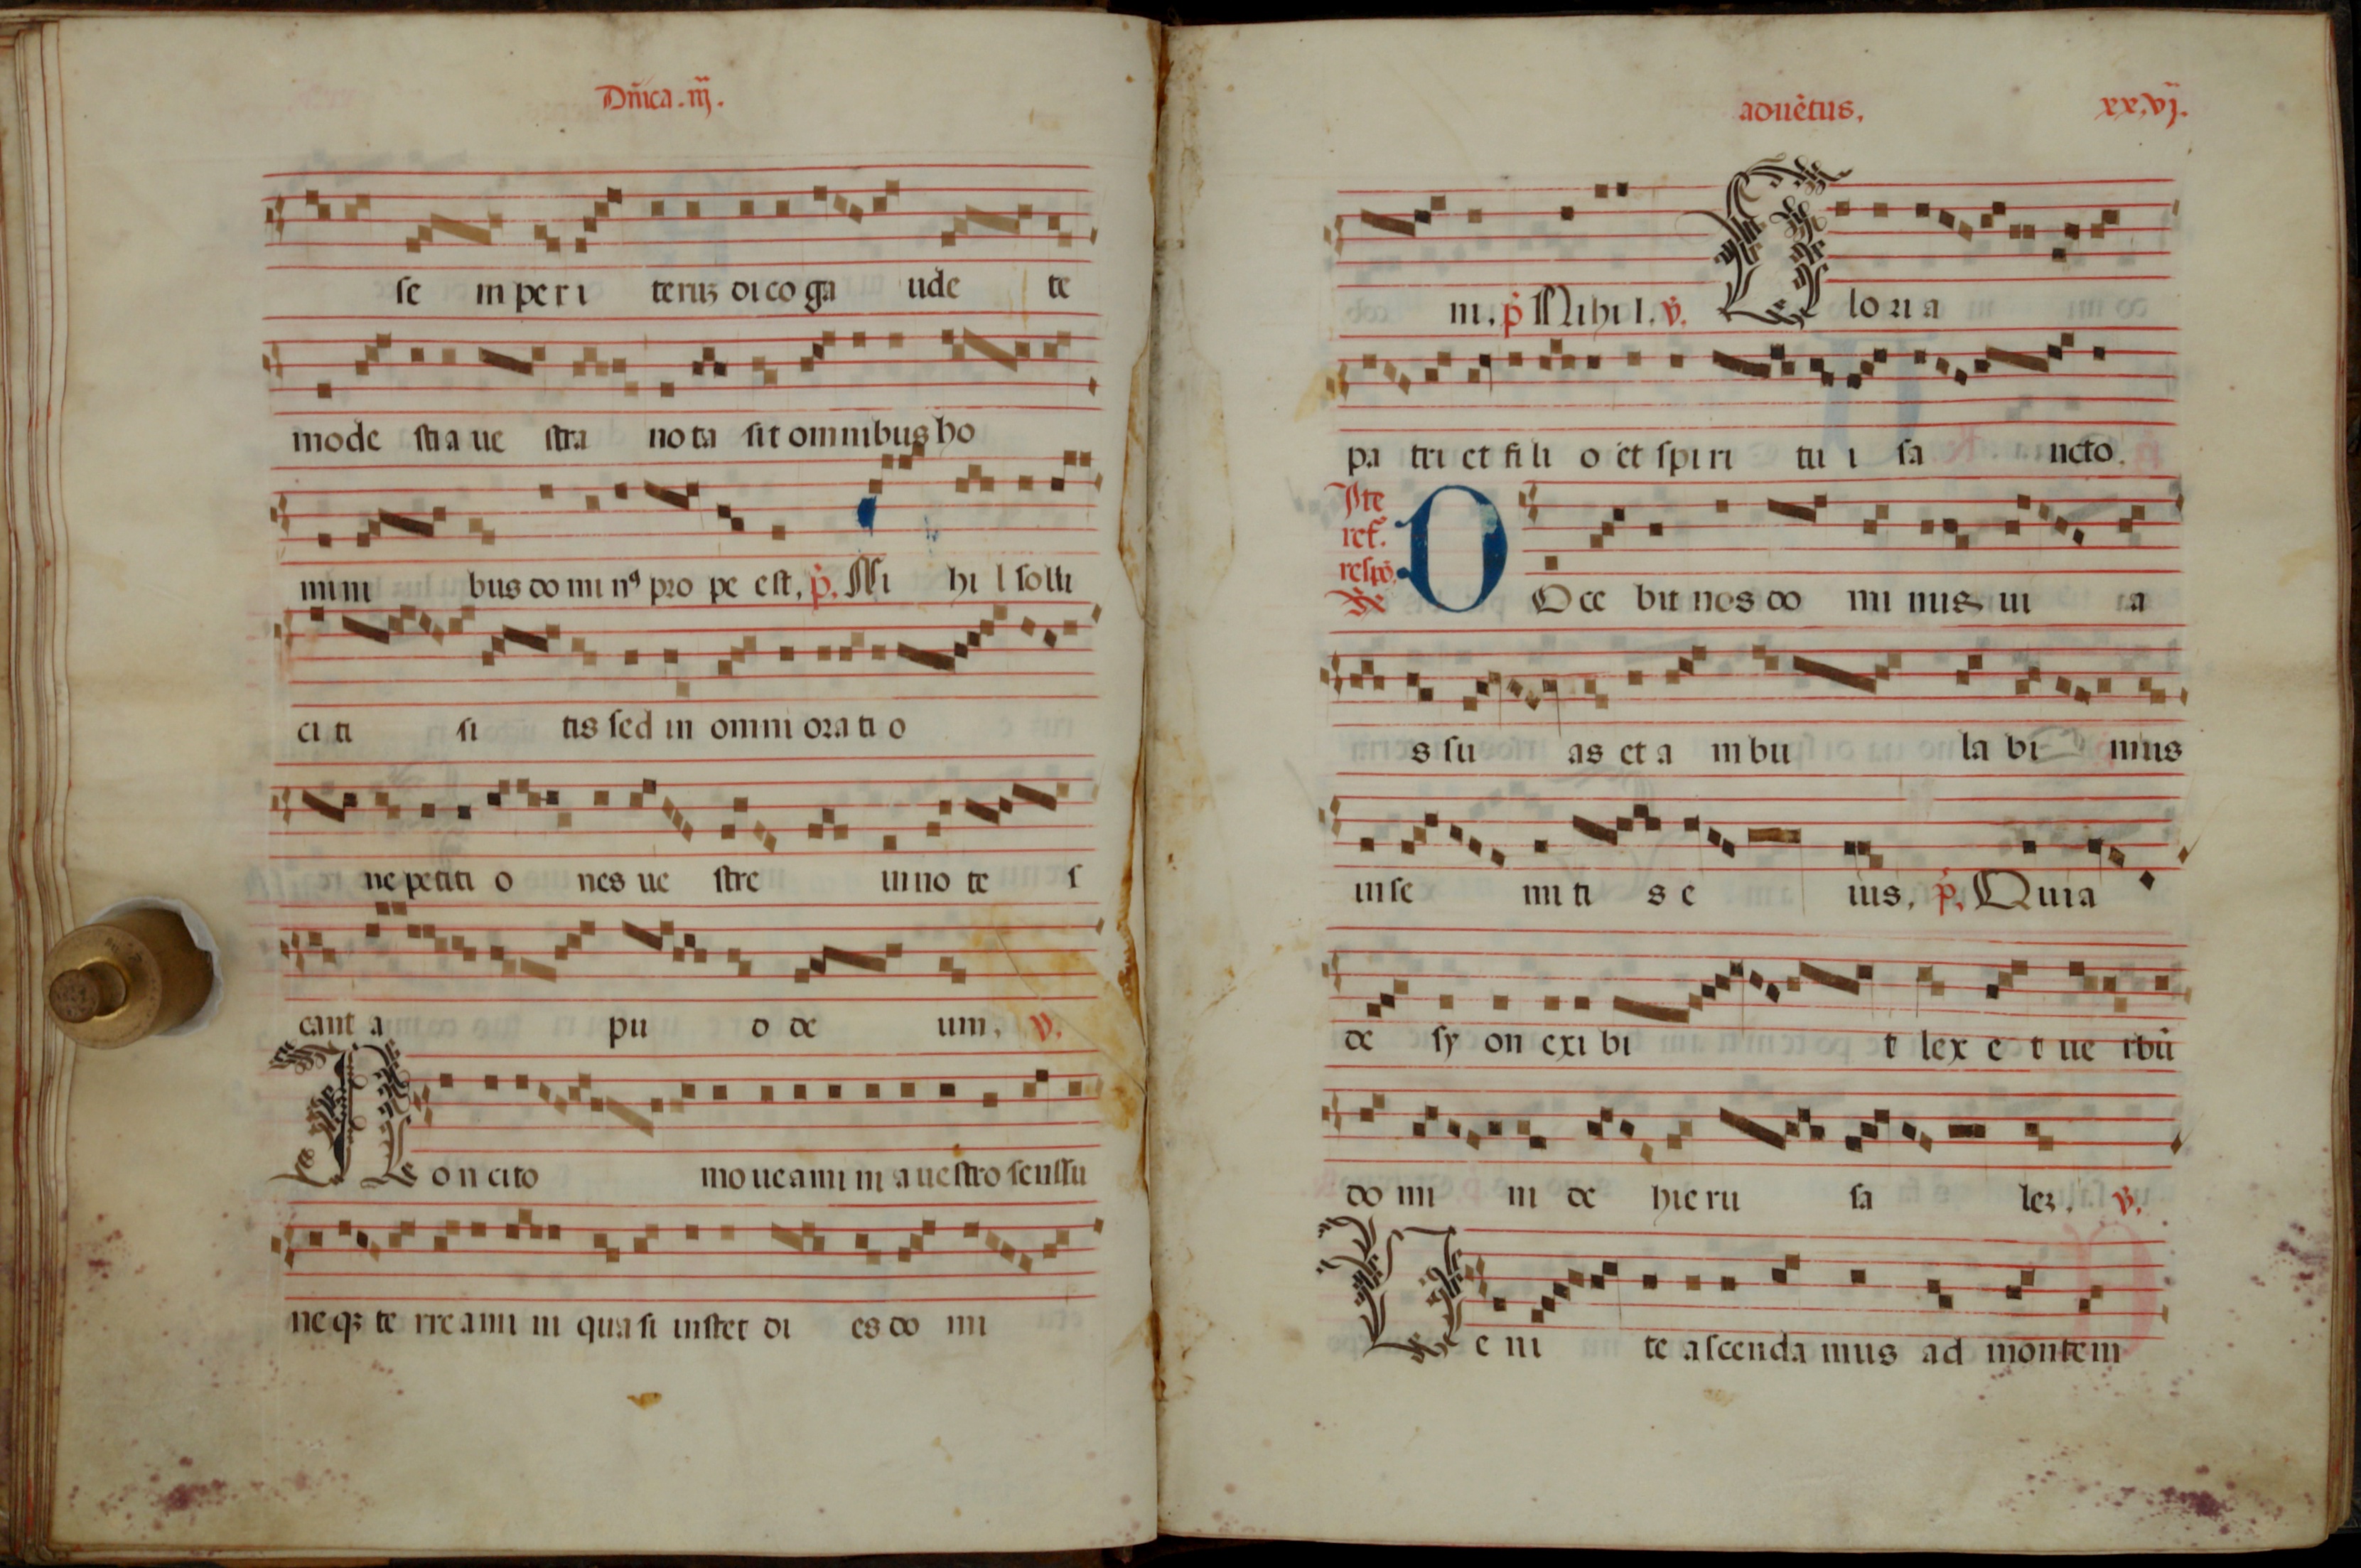 Dñica.iij.
se mper i teruȝ dico ga ude te
mode stia ue stra no ta sit omnibus ho
mini bus do mi nꝰ pro pe est, p̄. Ni hi l solli
ci ti si tis sed in omni ora ti o
ne petiti o nes ue stre inno te s
cant a pu d de um, v̄.
Non cito moueamini a uestro sensu
neqȝ te rreamini quasi instet di es do mi
aduẽtus, xx,vj.
ni, p̄ Nihil. v̄. Gloria
pa tri et fili o et spiri tu i sa ncto.
Ite
ref.
respō.
Docebit nos do mi nus ui a
s su as et a mbu la bi mus
in se miti s e ius, p̄. Quia
de sy on exi bi t lex e t ue rbū
do mi ni de hieru sa leȝ. v̄.
Ueni te ascenda mus ad montem